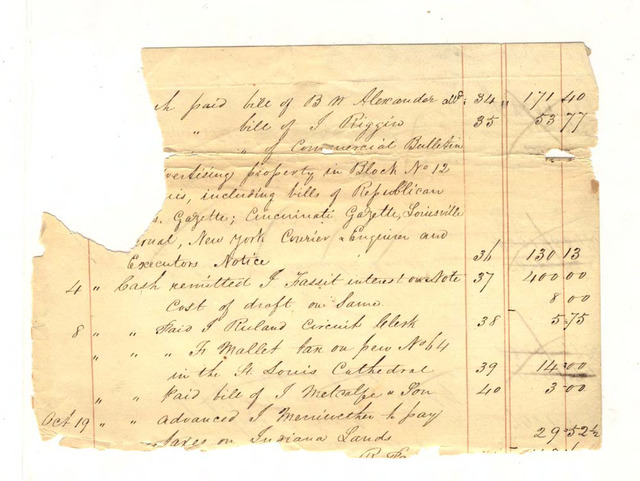 h paid bill of B W Alexander atty 34 " 171 40
" bill of J Riggin 35 53 77
" of Commercial Bulletin
vertising property in Block No 12
uis, including bills of Republican
s. Gazette; Cincinnati Gazette, Louisville
ournal, New York Courier & Enquirer and
Executors Notice 36 130 13
4 " Cash remitted J Fassit interest on Note 37 400 00
Cost of draft on Same 8 00
8 " " Paid J Ruland Circuit Clerk 38 5 75
" " " Fr Mallet tax on pew No 64
in the St Louis Cathedral 39 14 00
" " Paid bill of J Metcalfe & Son 40 3 00
Oct 19 " " advanced J Merriwether to pay
taxes on Indiana Lands 29 52½